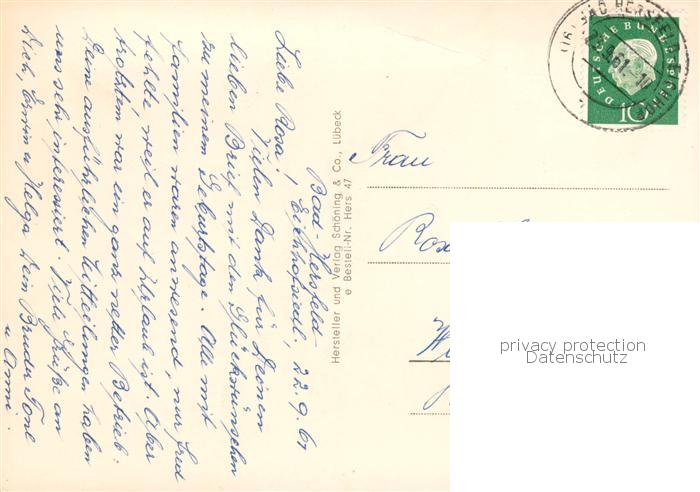 Bad-Hersfeld
Eichhofsiedl, 22.9.61
Liebe Rosa!
Vielen Dank für Deinen
lieben Brief mit den Glückwünschen
zu meinem Geburtstage. Alle mit
Familien waren anwesend, nur Fred
fehlte weil er auf Urlaub ist. Aber
trotzdem war ein ganz netter Betrieb.
Deine ausführlichen Mitteilungen haben
uns sehr interessiert. Viele Grüße an
Dich, Erwin u. Helga Dein Bruder Toni
u Anni.
Hersteller und Verlag Schöning & Co., Lübeck
e Bestell-Nr. Hers 47
Frau
(16) BAD HERSFELD
22.9.61
DEUTSCHE BUNDESPOST
10
privacy protection
Datenschutz